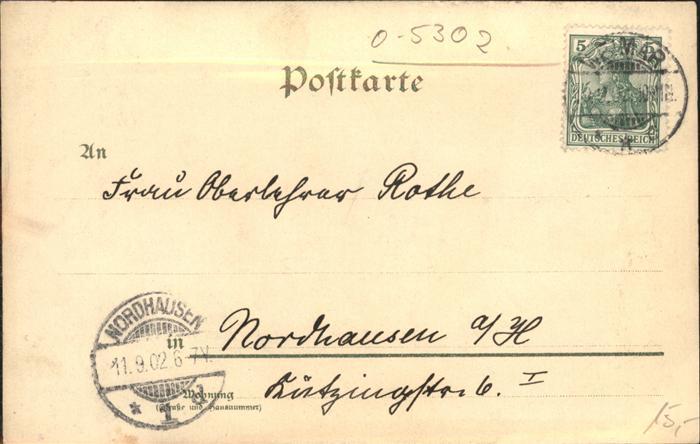 0-5302
Postkarte
5 5
MAR
DEUTSCHES REICH
An
Frau Oberlehrer Rothe
NORDHAUSEN
11.9.02.6-7V.
* 1 d
in Nordhausen a/H
Wohnung Kützingstr. 6. I
(Straße und Hausnummer)
15,-